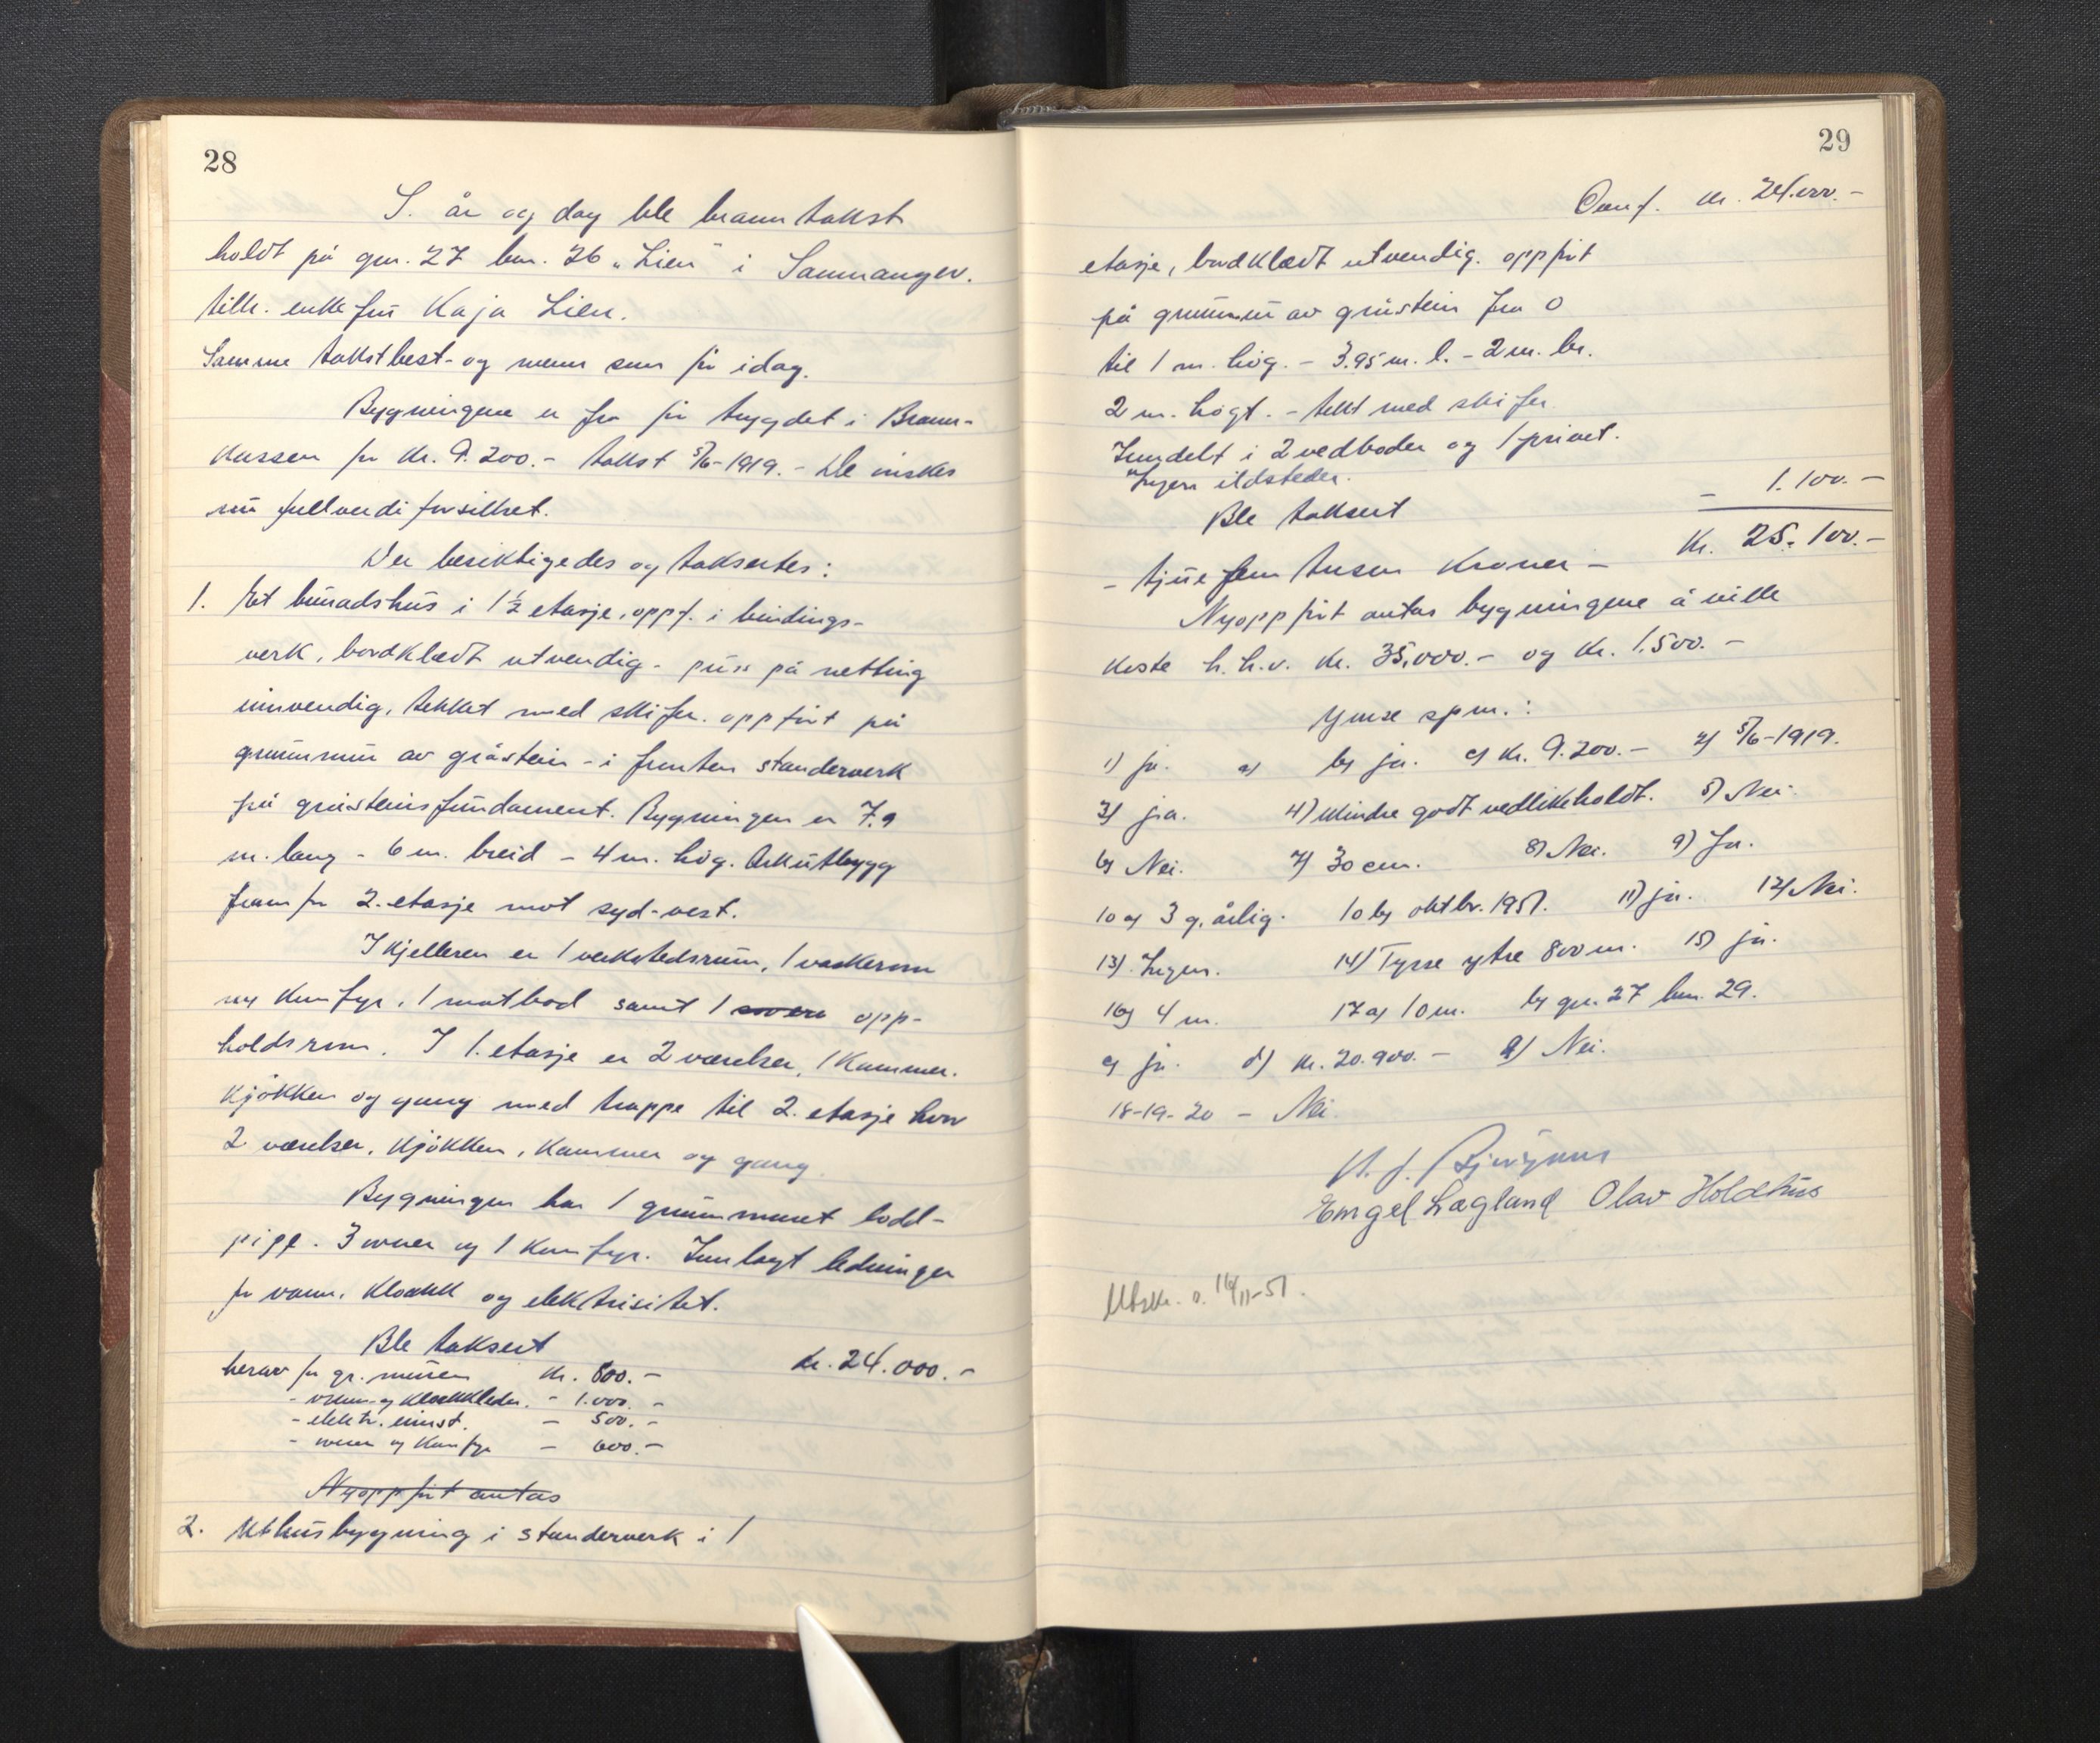 28
S. år og dag ble branntakst
holdt på gnr. 27 bnr. 26 "Lien" i Samnanger.
tilh. enkefru Kaja Lien.
Samme takstbest- og menn som før idag.
Bygningene er fra før trygdet i Brann-
kassen for kr. 9.200.- takst 5/6-1919. - De ønskes
nu fullverdi forsikret.
Der besiktigedes og taksertes:
1. Et bunadshus i 1½ etasje, oppf. i bindings-
verk, bordklædt utvendig - puss på netting
innvendig, tekket med skifer. oppført på
grunnmur av gråstein - i fronten standerverk
på gråsteinsfundament. Bygningen er 7.9
m. lang - 6 m. breid - 4 m. høg. Arkutbygg
fram for 2. etasje mot syd-vest.
I kjelleren er 1 verkstedsrum, 1 vaskerom
m/ komfyr, 1 matbod samt 1 opp-
holdsrom. I 1. etasje er 2 værelser, 1 kammer.
kjøkken og gang med trappe til 2. etasje hvor
2 værelser, kjøkken, kammer og gang.
Bygningen har 1 grunnmuret lodd-
pipe. 3 ovner og 1 komfyr. Innlagt ledninger
for vann, kloakk og elektrisitet.
Ble taksert kr. 24.000.-
herav for gr. muren kr. 800.-
- vann og kloakkledn. - 1.000.-
- elektr. innst. - 500.-
- ovner og komfyr - 600.-
Nyoppført antas
2. Uthusbygning i standerverk i 1
29
Overf. kr. 24.000.-
etasje, bordklædt utvendig. oppført
på grunnmur av gråstein fra 0
til 1 m. høg. - 3.95 m. l. - 2 m. br.
2 m. høgt. - tekt med skifer.
Inndelt i 2 vedboder og 1 privet.
Ingen ildsteder.
Ble taksert - 1.100.-
kr. 25.100.-
- tjuefem tusen kroner -
Nyoppført antas bygningene å ville
koste h.h.v. kr. 35.000.- og kr. 1.500.-
Ymse spm.:
1) ja. a) b) ja. c) kr. 9.200.- 2) 5/6-1919.
3) ja. 4) Mindre godt vedlikeholdt. 5) Nei.
6) Nei. 7) 30 cm. 8) Nei. 9) Ja.
10 a) 3 g. årlig. 10 b) oktbr. 1951. 11) ja. 12) Nei.
13) Ingen. 14) Tysse ytre 800 m. 15) ja.
16) 4 m. 17 a) 10 m. b) gnr. 27 bnr. 29.
c) ja. d) kr. 20.900.- e) Nei.
18-19-20 - Nei.
Engel Lægland Olav Holdhus
Utskr. s. 16/11-51.